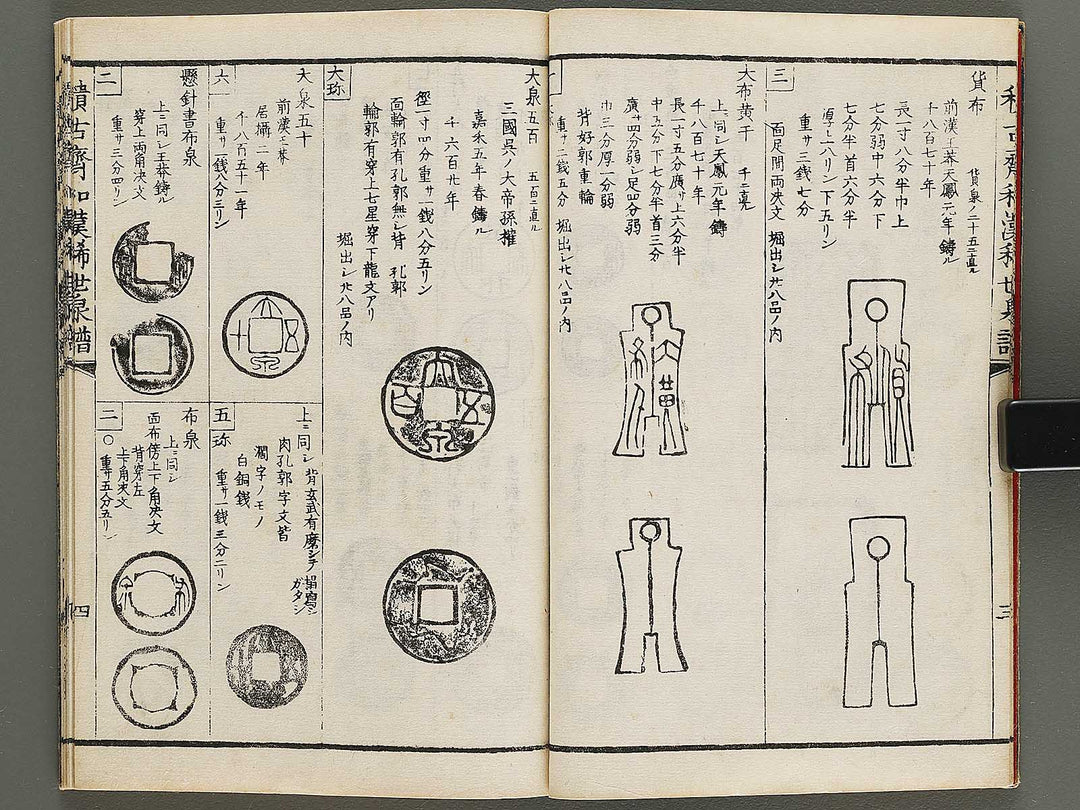 三
貨布
貨泉ノ二十五ニ直ル
前漢王莽天鳳元年鋳ル
千八百七十年
長一寸八分半巾上
七分弱中六分下
七分半首六分半
厚上八リン下五リン
重サ三銭七分
面足間両决文
堀出シ廿八品ノ内
大布黄千 千ニ直ル
上ニ同シ天鳳元年鋳
千八百七十年
長一寸五分廣サ上六分半
中五分下七分半首三分
廣サ四分弱シ足四分弱
巾三分厚一分弱
背好郭重輪
重サ二銭五分 堀出シ廿八品ノ内
三
大泉五百 五百ニ直ル
三國呉ノ大帝孫権
嘉禾五年春鋳ル
千六百廿年
徑一寸四分重サ一銭八分五リン
面輪郭有孔郭無シ背 孔郭
輪郭有穿上七星穿下龍文アリ
堀出シ廿八品ノ内
大珎
大泉五十
前漢王莽
居攝二年
千八百五十一年
重サ一銭八分三リン
六
上ニ同シ 背玄武有磨シテ搨寫シガタシ
肉孔郭字文皆
濶字ノモノ
白銅銭
重サ一銭三分二リン
五 珎
懸針書布泉
上ニ同シ王莽鋳ル
穿上両角决文
重サ三分四リン
二
布泉
上ニ同シ
面布傍上下角决文
背穿左
上下角决文
重サ五分五リン
二
〇
積古齋和漢稀世泉譜
四